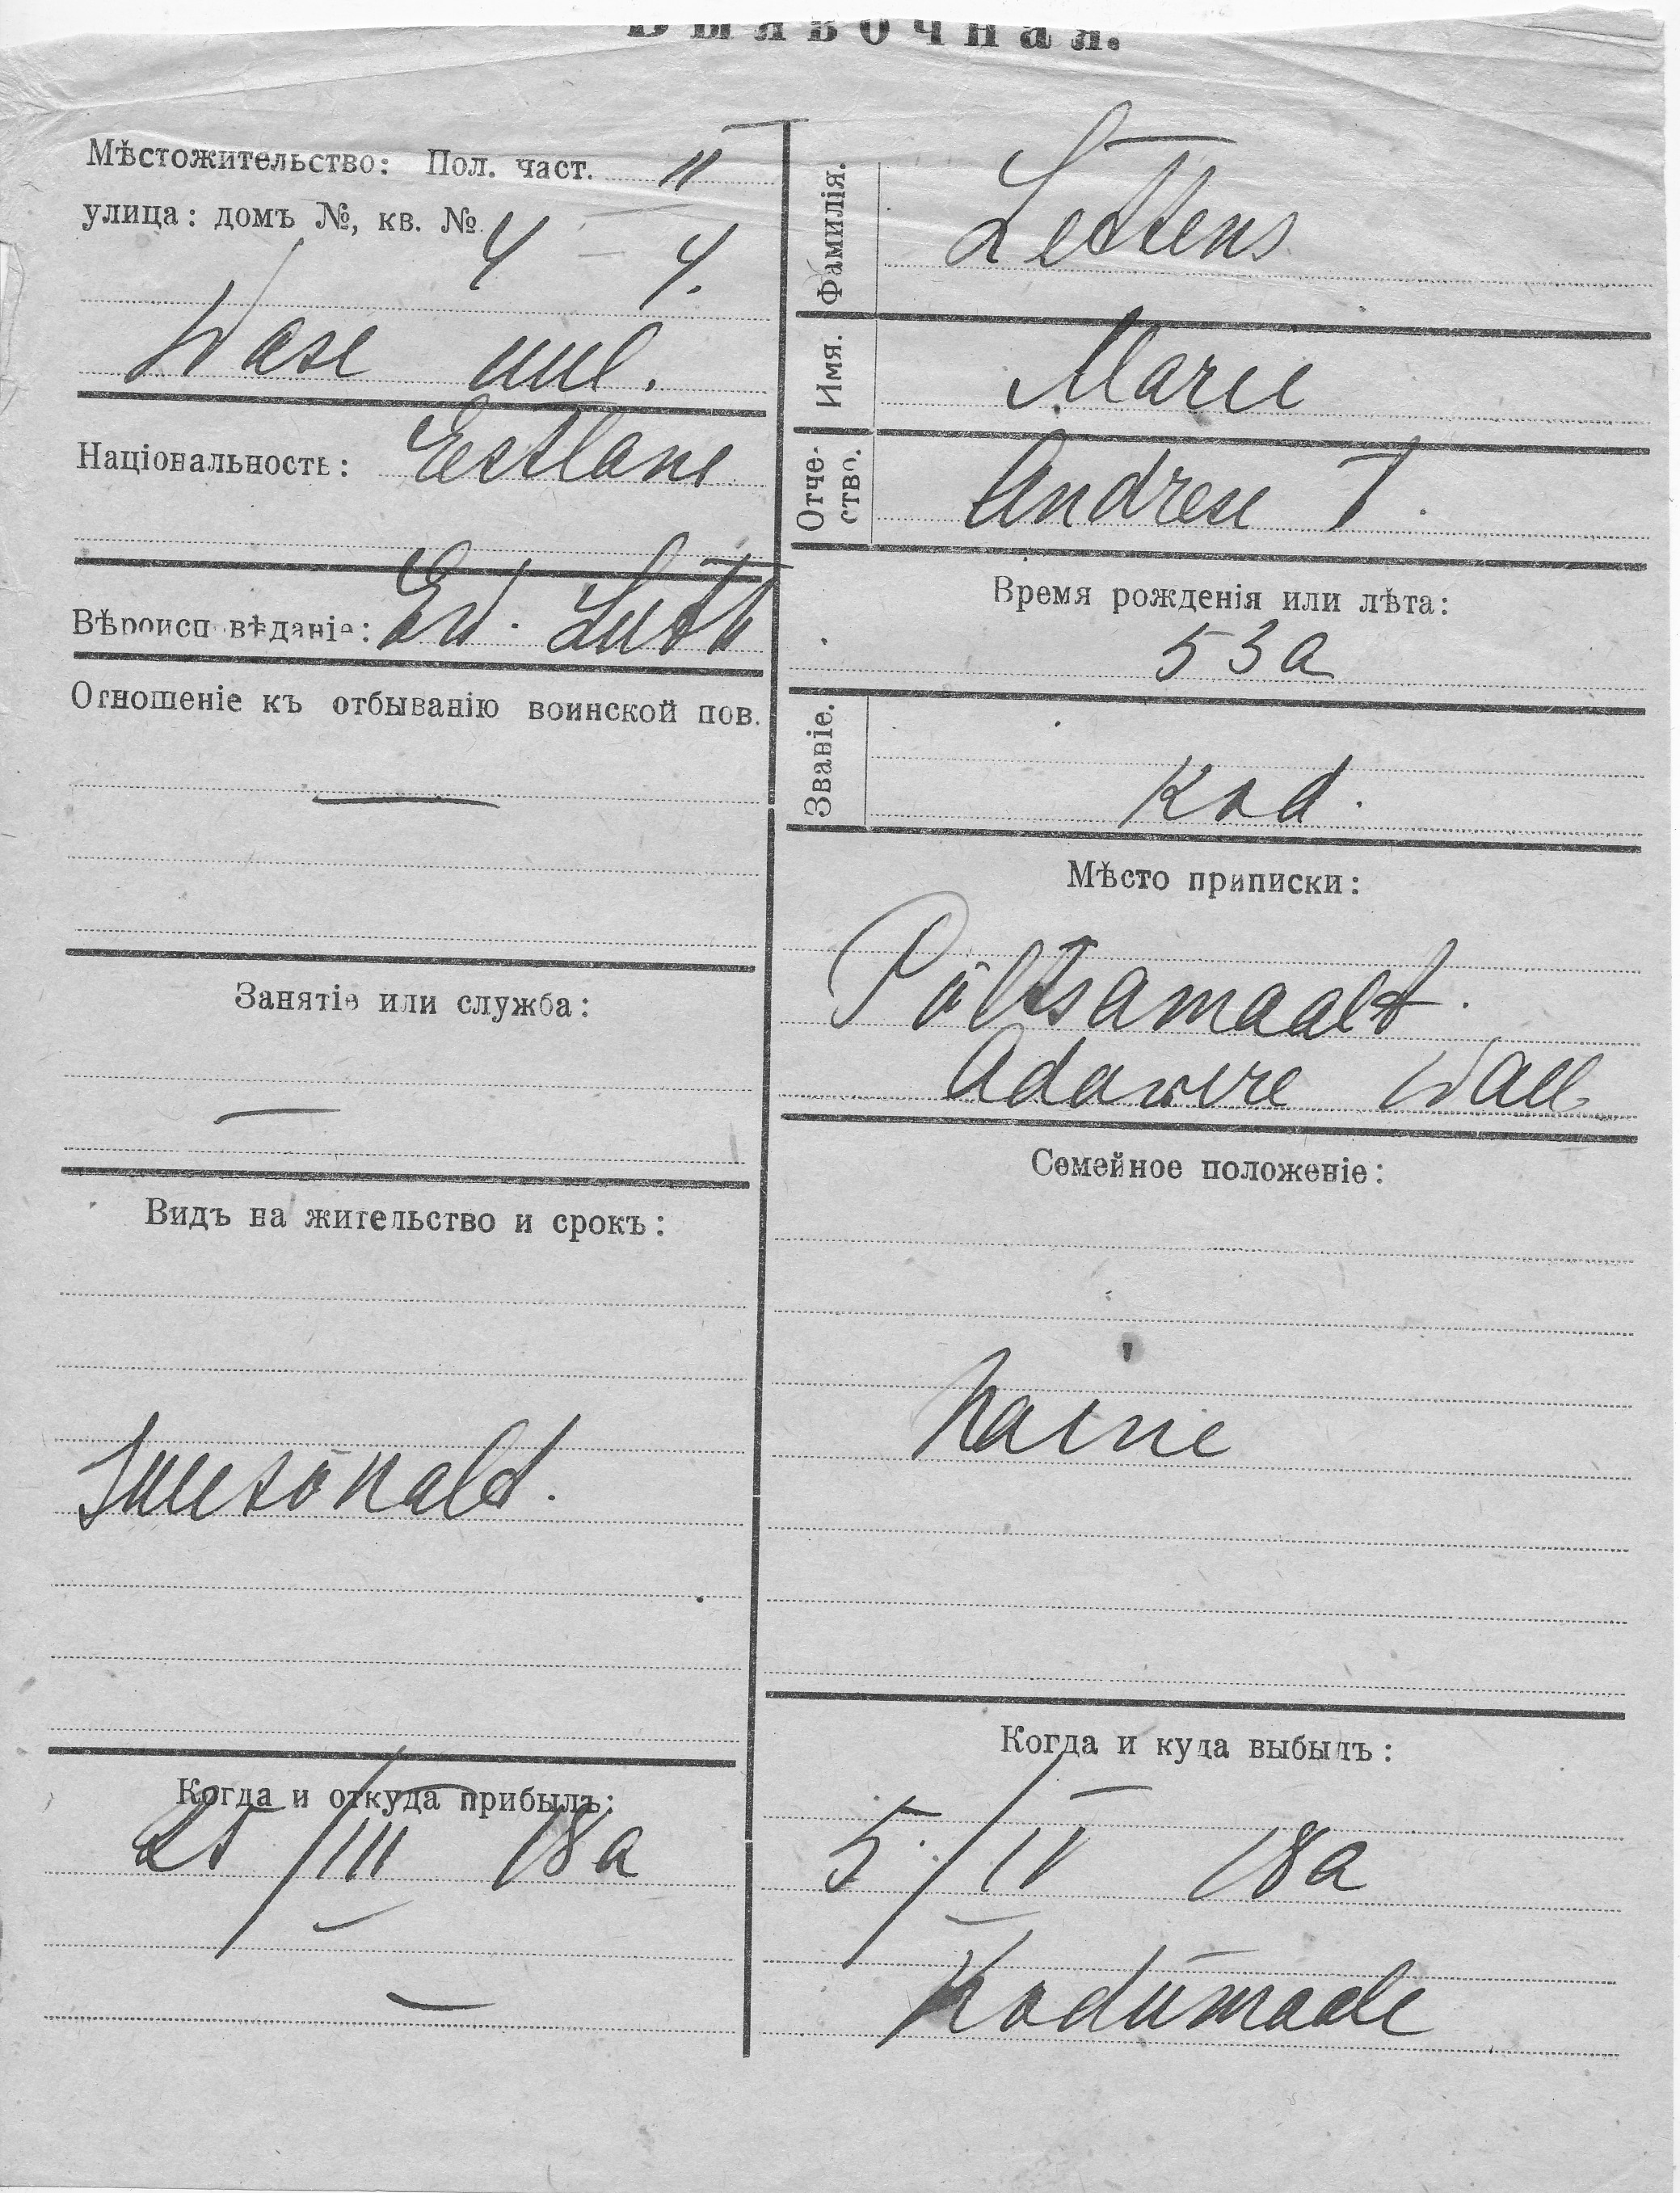 Выявочная.
Мѣстожительство: Пол. част. II
улица: домъ №, кв. № 4 – 4.
Wase uul.
Національность: Eestlane
Вѣроисповѣданіе: Ew. Luth
Отношеніе къ отбыванію воинской пов.
—
Занятіе или служба:
—
Видъ на жительство и срокъ:
Ilmusõnalt.
Когда и откуда прибылъ:
25/III 18a
—
Фамилія. Lettens
Имя. Marie
Отчество. Andrese T.
Время рожденія или лѣта:
53a
Званіе. Kod.
Мѣсто приписки:
Põltsamaalt.
Adawere Wall
Семейное положеніе:
Naine
Когда и куда выбылъ:
5./IV 18a
Kodumaale